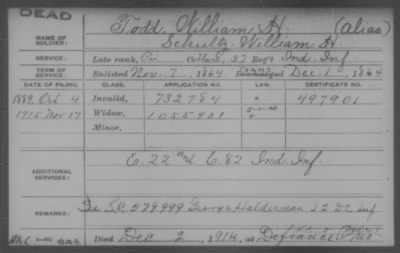 DEAD
NAME OF SOLDIER: Todd, William H. (alias)
Schultz, William H.
SERVICE: Late rank, Co. 37 Reg't Ind. Inf.
TERM OF SERVICE: Enlisted Nov. 7, 1864 Discharged Dec. 1, 1864
DATE OF FILING. CLASS. APPLICATION NO. LAW. CERTIFICATE NO.
1889 Oct 4 Invalid, 732784 497901
1915 Nov 17 Widow, 1055931
Minor,
ADDITIONAL SERVICES: E. 22 nd C. 82 Ind Inf
REMARKS: S.C. 579999 George Halderman 22 Inf
Died Dec 2, 1914, at Defiance Ohio